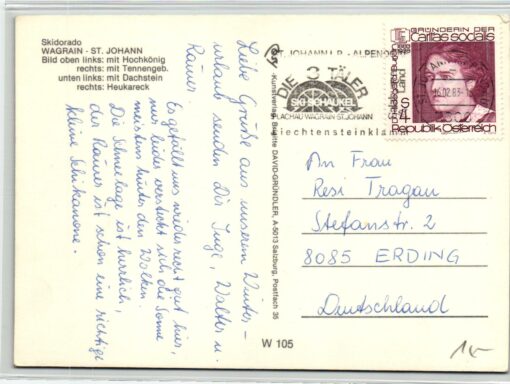 Skidorado
WAGRAIN - ST. JOHANN
Bild oben links: mit Hochkönig
rechts: mit Tennengeb.
unten links: mit Dachstein
rechts: Heukareck
Liebe Grüße aus unserem Winter-
urlaub senden Dir Inge, Walter u.
Rainer.
Es gefällt uns wieder recht gut hier,
nur leider versteckt sich die Sonne
meistens hinter den Wolken.
Die Schneelage ist herrlich,
der Rainer ist schon eine richtige
kleine Schikanone.
Kunstverlag Brigitte DAVID-GRÜNDLER, A-5013 Salzburg, Postfach 35
W 105
ST. JOHANN I. P. - ALPENDORF
DIE 3 TÄLER
SKI-SCHAUKEL
FLACHAU WAGRAIN-ST.JOHANN
Liechtensteinklamm
GRÜNDERIN DER
Caritas socialis
S4
Republik Österreich
16.02.83
An Frau
Resi Tragan
Stefanstr. 2
8085 ERDING
Deutschland